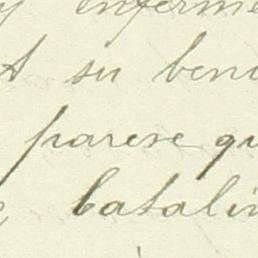 y enferme
A su bend
parese qu
e batalin